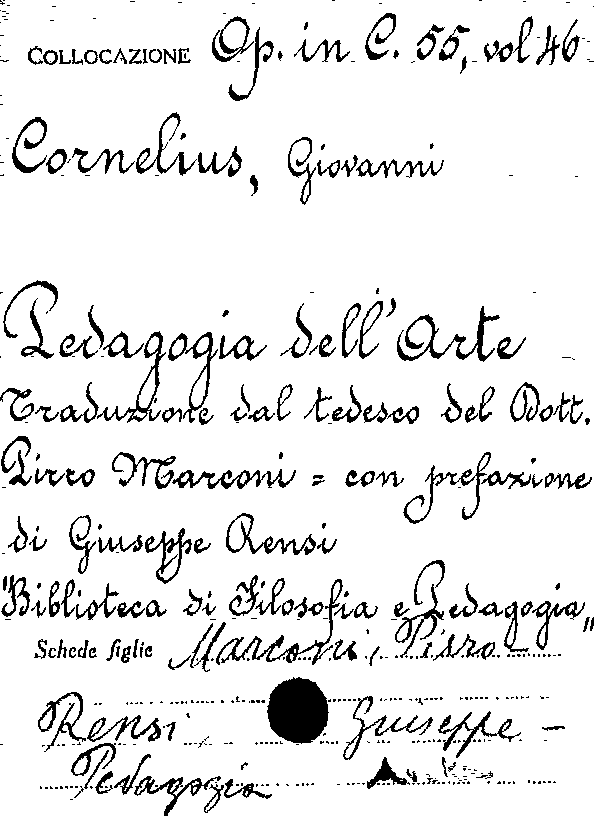 COLLOCAZIONE Op. in C. 55, vol 46
Cornelius, Giovanni
Pedagogia dell'Arte
Traduzione dal tedesco del Dott.
Pirro Marconi = con prefazione
di Giuseppe Rensi
"Biblioteca di Filosofia e Pedagogia"
Schede figlie Marconi, Pirro -
Rensi, Giuseppe -
Pedagogia